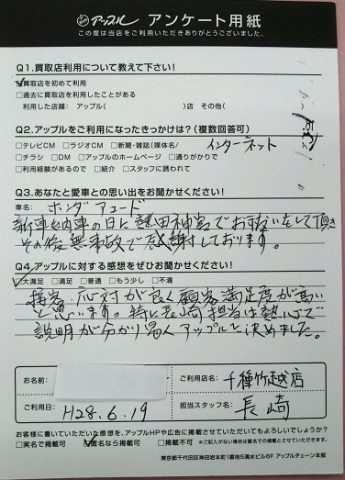 アップル アンケート用紙
この度は当店をご利用いただきありがとうございました。
Q1.買取店利用について教えて下さい!
☑買取店を初めて利用
□過去に買取店を利用したことがある
利用した店舗: アップル( )店 その他( )
Q2.アップルをご利用になったきっかけは?(複数回答可)
□テレビCM □ラジオCM □新聞・雑誌(媒体名/ インターネット
□チラシ □DM □アップルのホームページ □通りがかりで
□利用経験があるので □紹介 □スタッフに誘われて
Q3.あなたと愛車との思い出をお聞かせください!
車名: ホンダ アコード
新車納車の日に熱田神宮でお祓いをして頂き
その後無事故で感謝しております。
Q4.アップルに対する感想をぜひお聞かせください!
☑大満足 □満足 □普通 □もう少し □不満
接客、応対が良く顧客満足度が高い
と思います。特に長崎担当は熱心で
説明が分かり易くアップルに決めました。
お名前:
ご利用店名: 千種竹越店
ご利用日: H28.6.19
担当スタッフ名: 長崎
お客様に書いていただいた感想を、アップルHPや広告に掲載させていただいてもよろしいでしょうか?
□実名で掲載可 ☑匿名なら掲載可 □掲載不可 ※ご記入がない場合は匿名での掲載とさせていただきます。
東京都千代田区神田岩本町1番地5清水ビル6F アップルチェーン本部